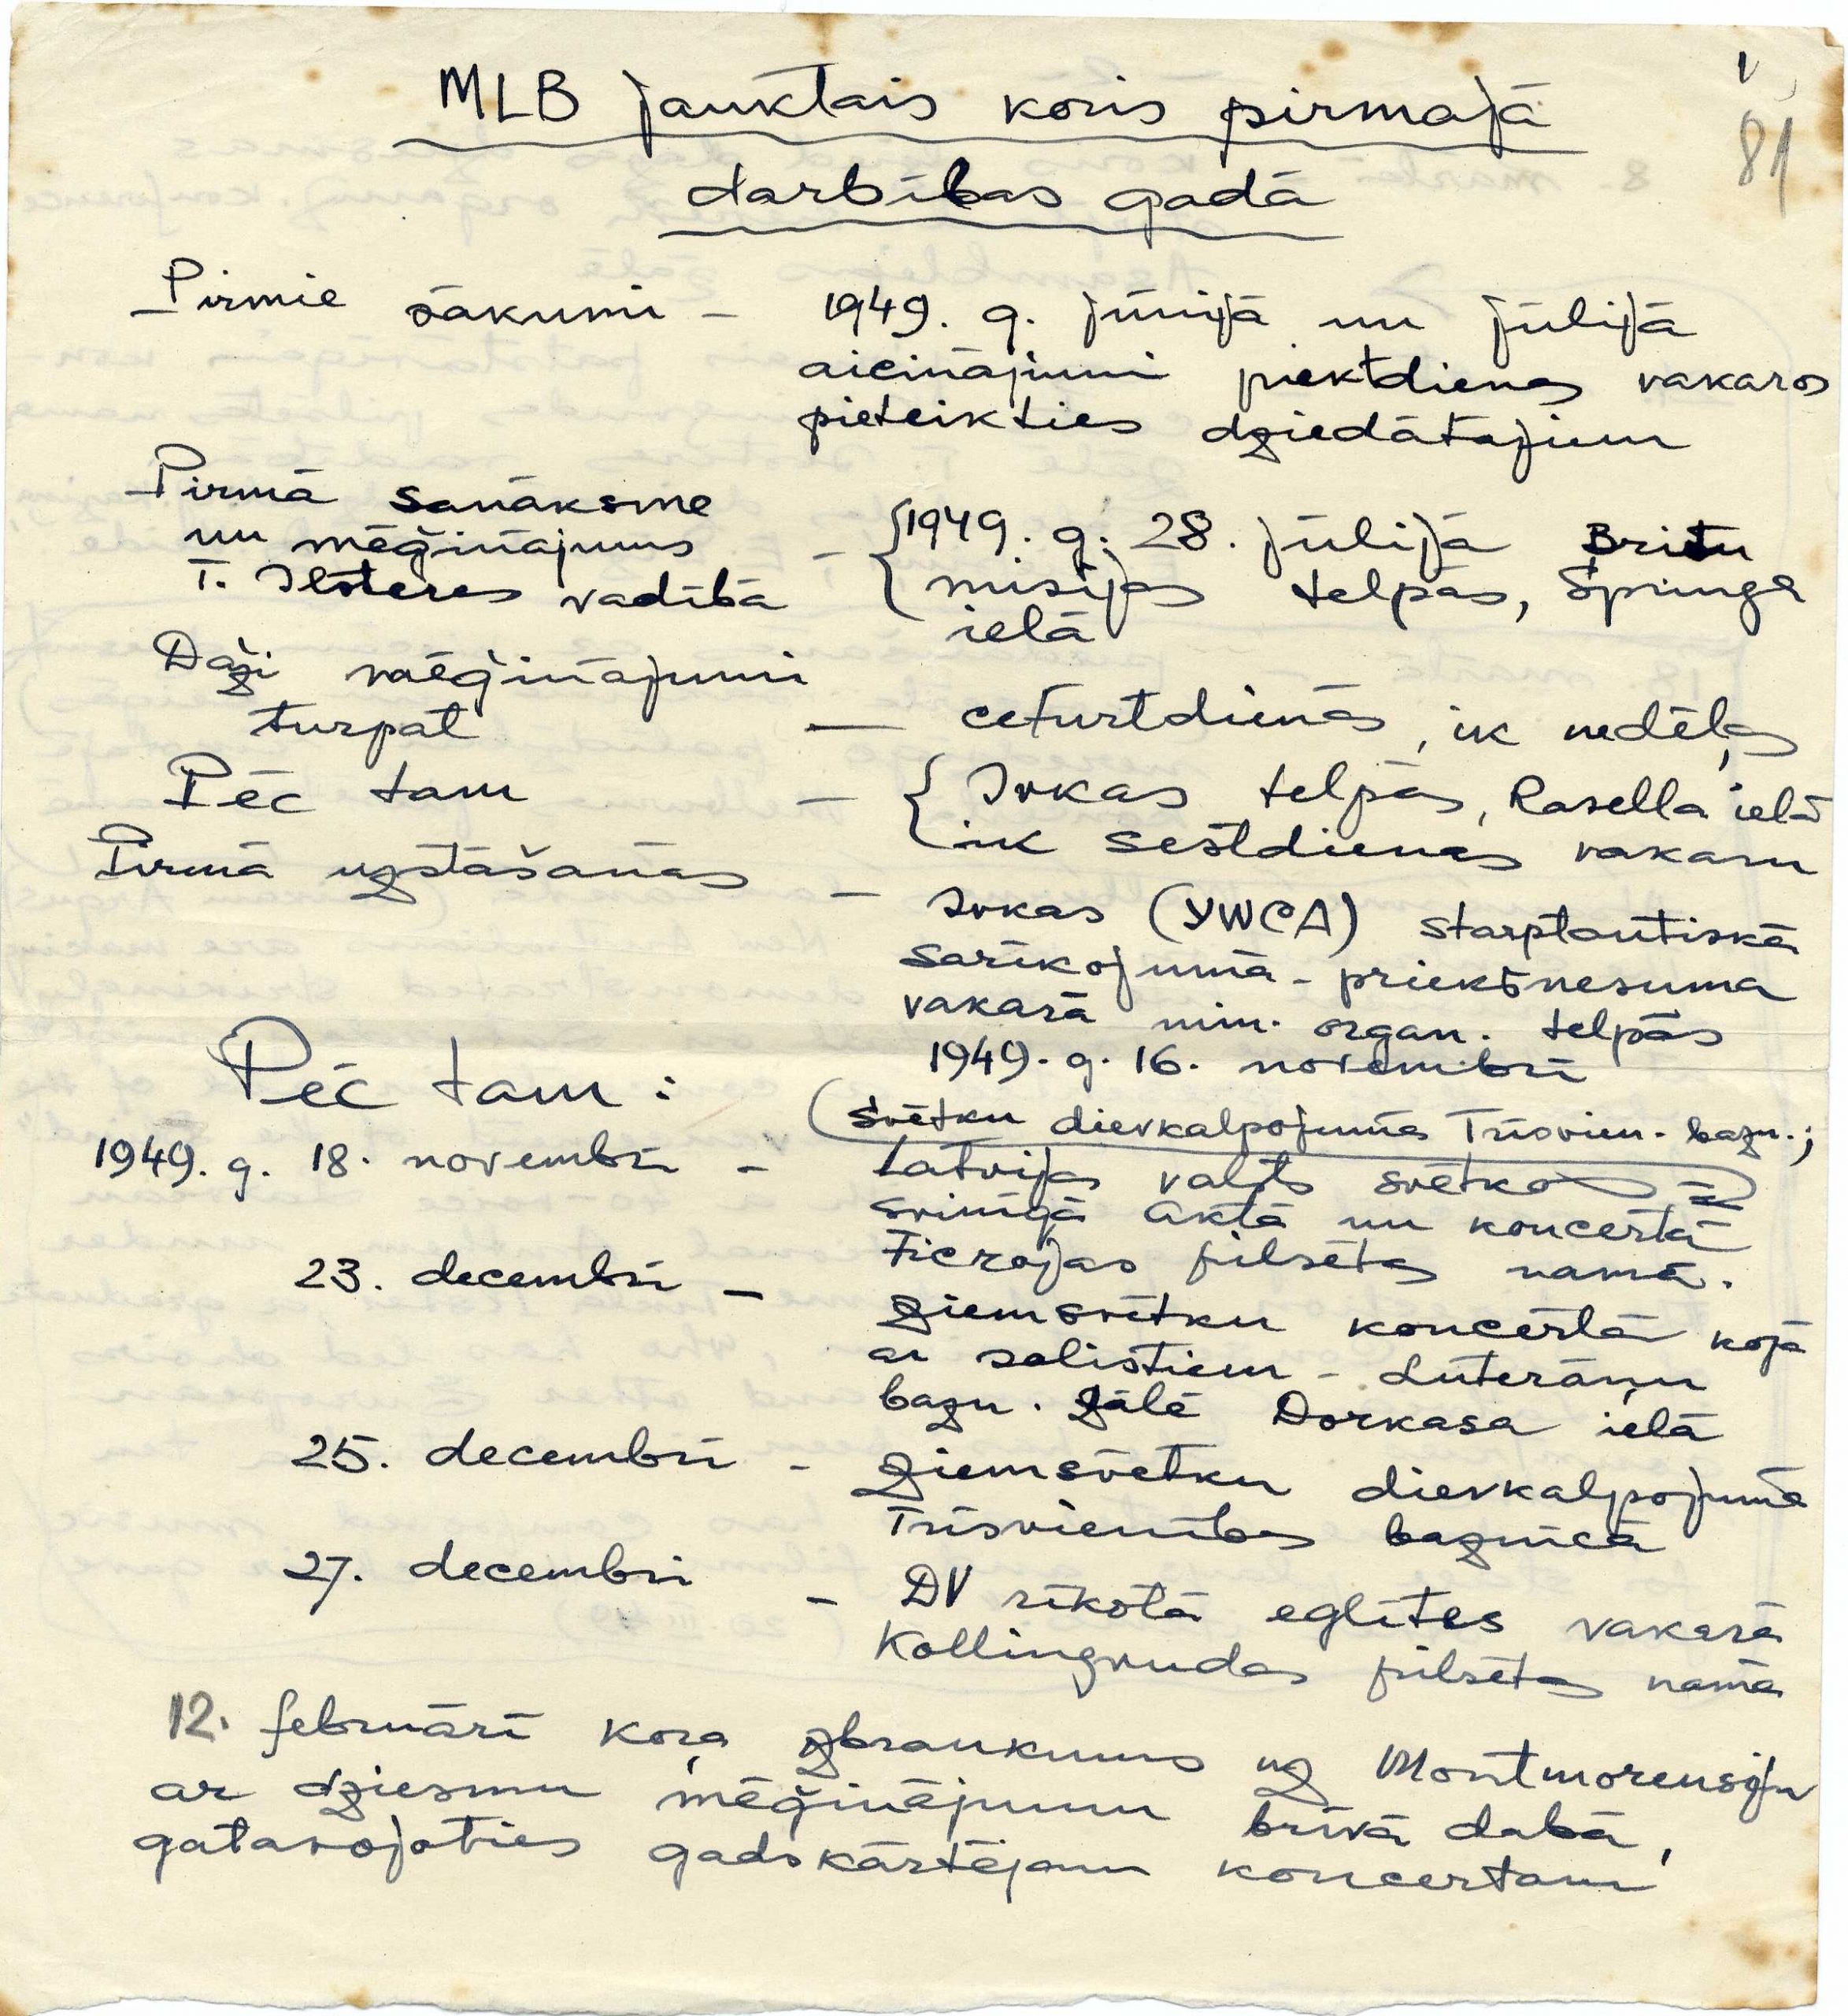 1
81
MLB jauktais koris pirmajā
darbības gadā
Pirmie sākumi – 1949. g. jūnijā un jūlijā
aicinājumi piektdienas vakaros
pieteikties dziedātājiem
Pirmā sanāksme
un mēģinājums
T. Ilsteres vadībā
– 1949. g. 28. jūlijā Britu
misijas telpās, Springa
ielā
Daži mēģinājumi
turpat – ceturtdienās, ik nedēļas
Pēc tam – Ivkas telpās, Rasella ielā
ik sestdienas vakaru
Pirmā uzstāšanās – Ivkas (YWCA) starptautiskā
sarīkojumā – priekšnesuma
vakarā min. organ. telpās
1949. g. 16. novembrī
Pēc tam:
(svētku dievkalpojumā Trīsvien. bazn.;
1949. g. 18. novembrī – Latvijas valsts svētkos
svinīgā aktā un koncertā
Ficrojas pilsētas namā.
23. decembrī – ziemsvētku koncertā kopā
ar solistiem – Luterāņu
bazn. zālē Dorkasa ielā
25. decembrī – ziemsvētku dievkalpojumā
Trīsvienības baznīcā
27. decembrī – DV rīkotā eglītes vakarā
Kollingvudas pilsētas namā
12. februārī kora izbraukums uz Montmorensiju
ar dziesmu mēģinājumu brīvā dabā,
gatavojoties gadskārtējam koncertam